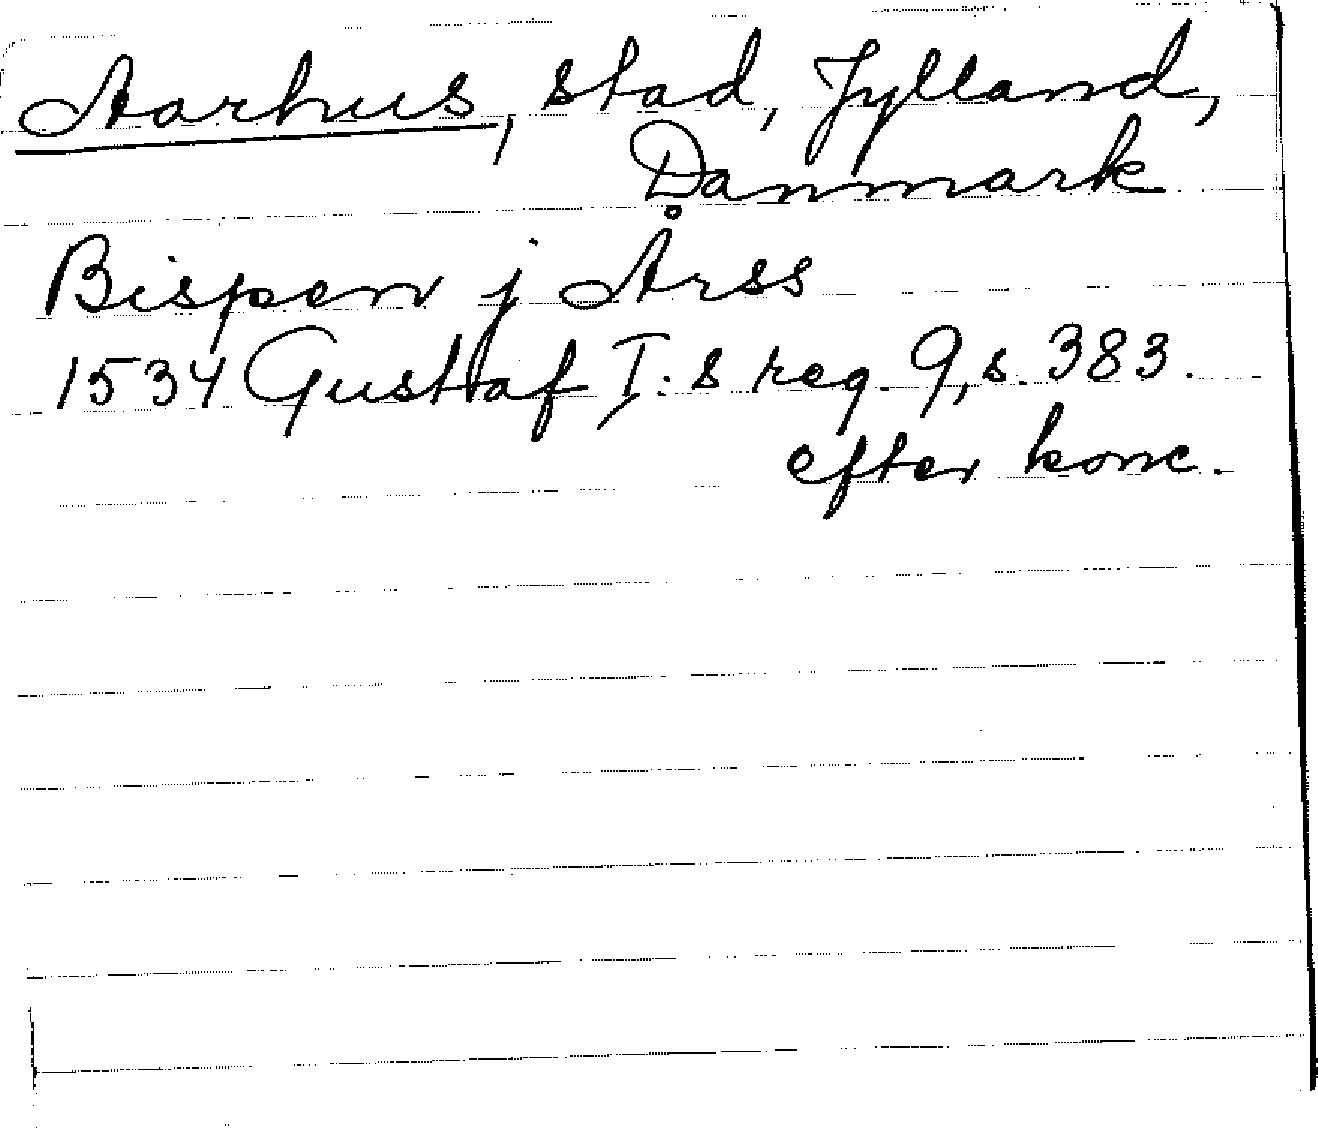 Aarhus, stad, Jylland,
Danmark
Bispen j Årss
1534 Gustaf I:s reg. 9, s. 383.
efter konc.